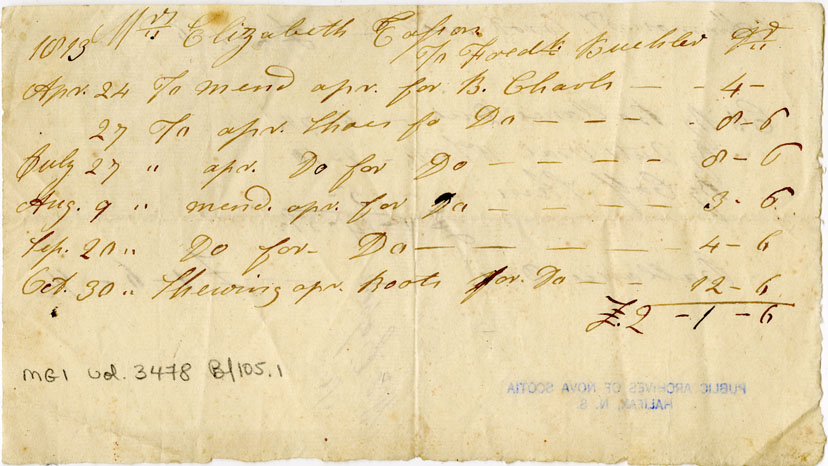 1813 Mrs Elizabeth Tapson
To Fredk. Buehler Dr
Apr. 24 To mend apr. for B. Charls — - 4 -
27 To apr. Shoes fo Do — — — - 8 - 6
July 27 " apr. Do for Do — — — — 8 - 6
Aug. 9 " mend. apr. for Do — — — — 3 - 6
Sep. 20 " Do for - Do — — — — — 4 - 6
Oct. 30 " Shewing apr. Boots for. Do — - 12 - 6
£. 2 - 1 - 6
MG1 Vol. 3478 B/105.1
PUBLIC ARCHIVES OF NOVA SCOTIA
HALIFAX, N. S.